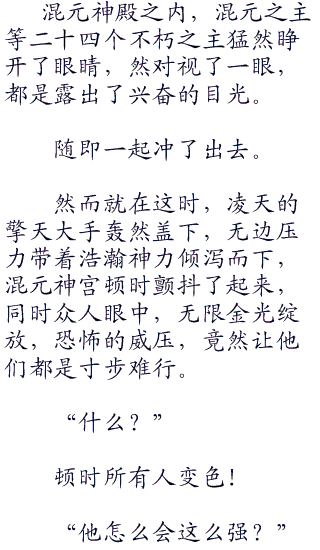 混元神殿之内，混元之主
等二十四个不朽之主猛然睁
开了眼睛，然对视了一眼，
都是露出了兴奋的目光。
随即一起冲了出去。
然而就在这时，凌天的
擎天大手轰然盖下，无边压
力带着浩瀚神力倾泻而下，
混元神宫顿时颤抖了起来，
同时众人眼中，无限金光绽
放，恐怖的威压，竟然让他
们都是寸步难行。
“什么？”
顿时所有人变色！
“他怎么会这么强？”